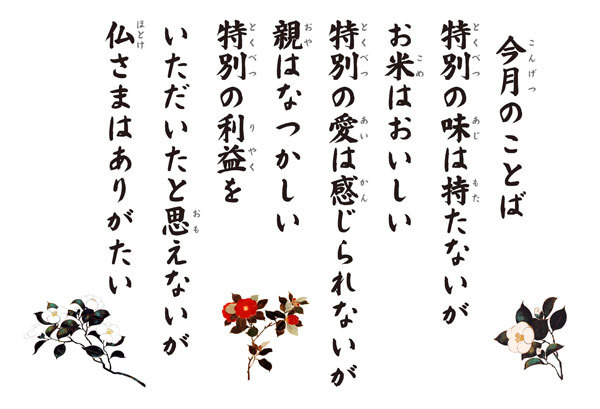 今月のことば
特別の味は持たないが
お米はおいしい
特別の愛は感じられないが
親はなつかしい
特別の利益を
いただいたと思えないが
仏さまはありがたい